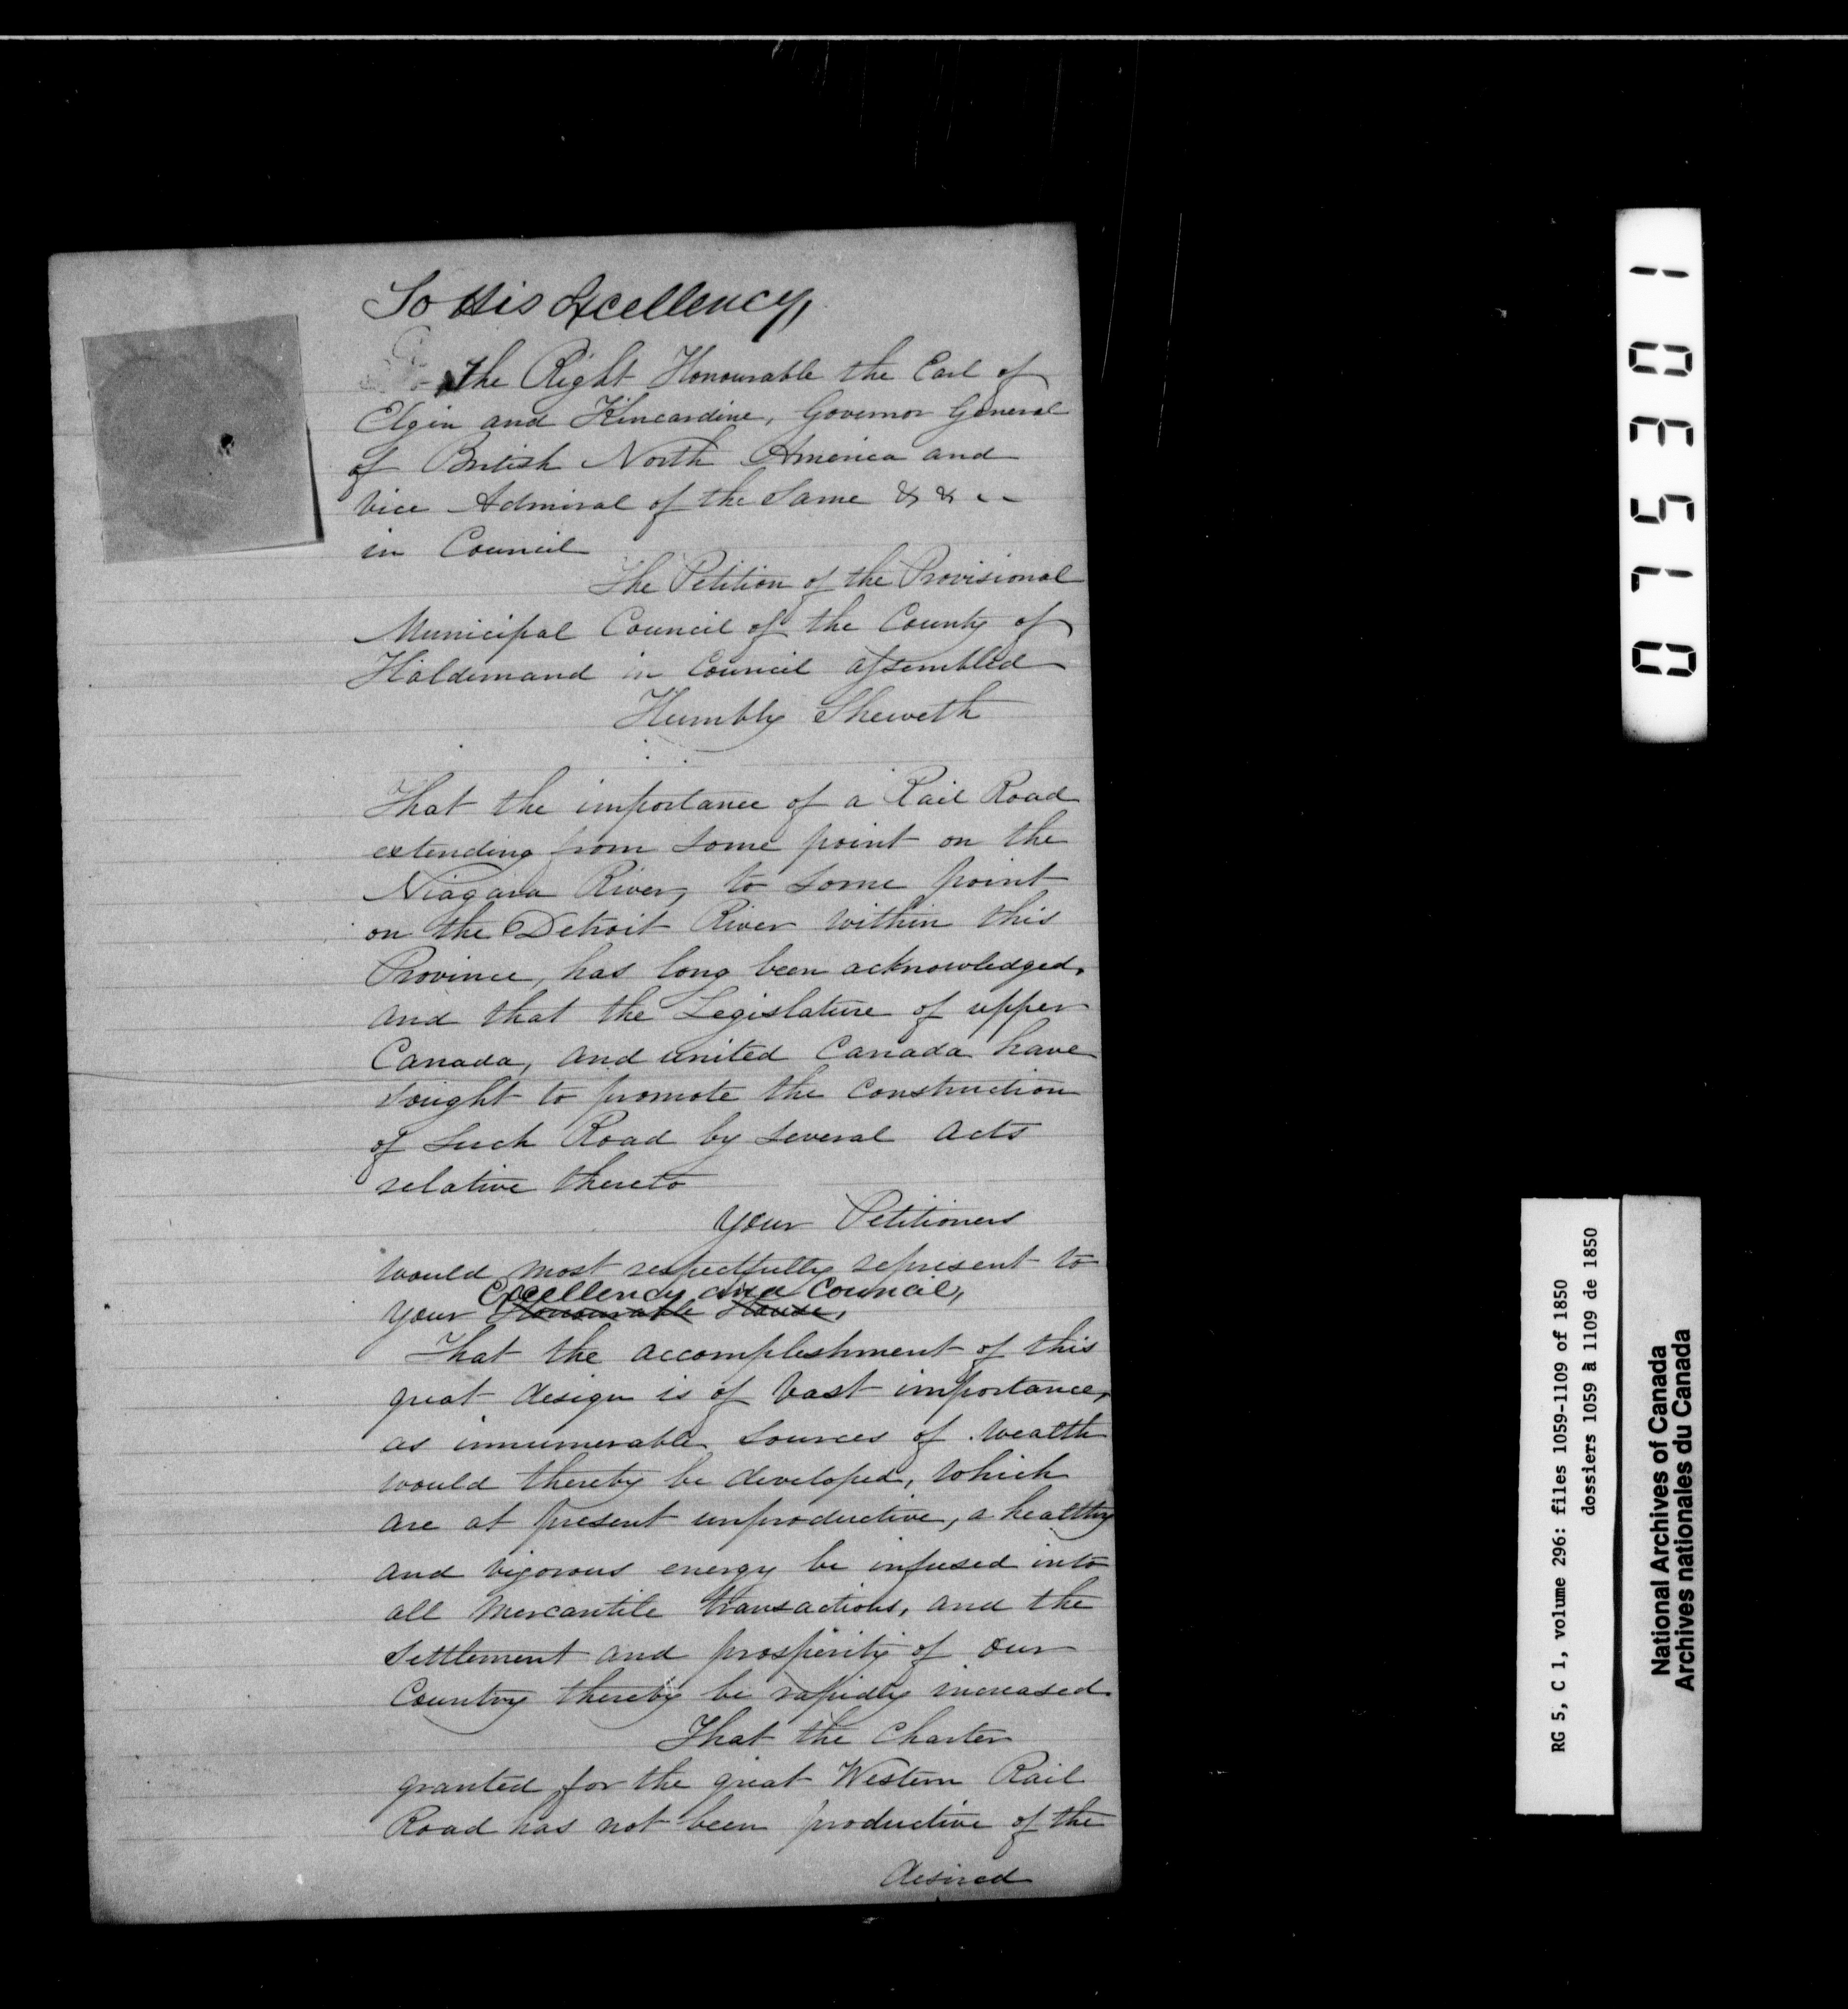 To His Excellency,
The Right Honourable the Earl of
Elgin and Kincardine, Governor General
of British North America and
Vice Admiral of the Same & & - -
in Council
The Petition of the Provisional
Municipal Council of the County of
Haldimand in Council assembled
Humbly Sheweth
That the importance of a Rail Road
extending from some point on the
Niagara River, to some point
on the Detroit River within this
Province, has long been acknowledged,
and that the Legislature of upper
Canada, and united Canada have
sought to promote the construction
of such Road by several acts
relative thereto
Your Petitioners
would most respectfully represent to
Excellency and Council,
your Honourable House,
That the accomplishment of this
great design is of vast importance,
as innumerable sources of wealth
would thereby be developed, which
are at present unproductive, a healthy
and vigorous energy be infused into
all mercantile transactions, and the
settlement and prosperity of our
Country thereby be rapidly increased
That the Charter
granted for the great Western Rail
Road has not been productive of the
desired
075301
RG 5, C 1, volume 296: files 1059-1109 of 1850
dossiers 1059 à 1109 de 1850
National Archives of Canada
Archives nationales du Canada